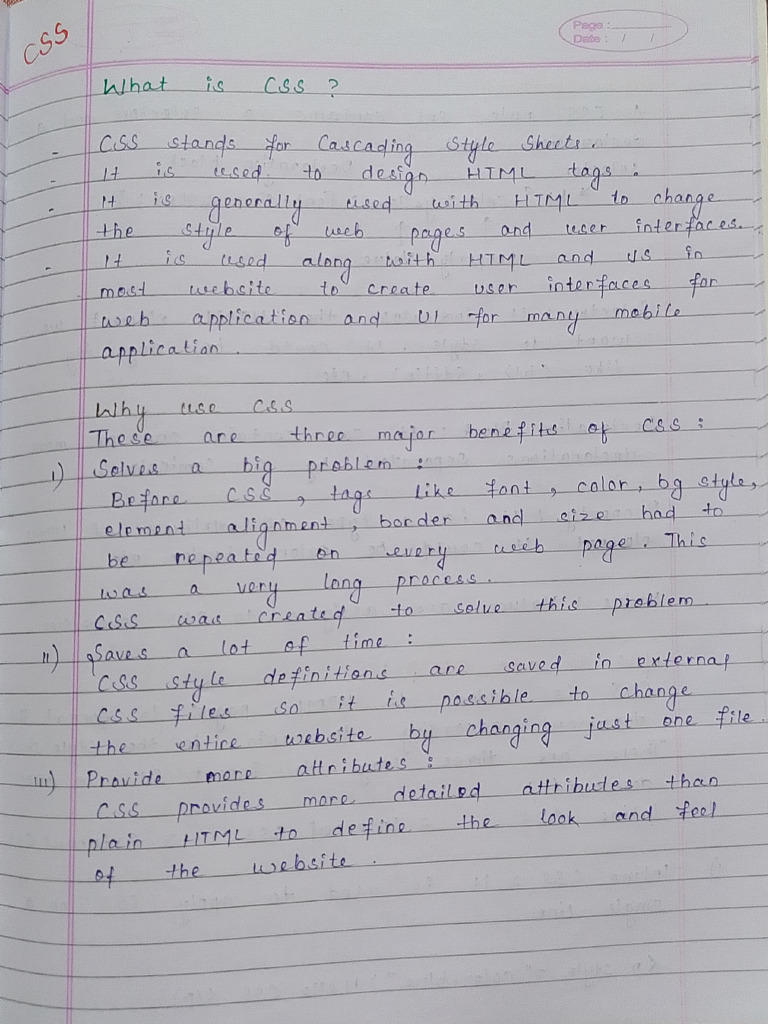 CSS
Page :
Date : / /
What is CSS ?
- CSS stands for Cascading Style Sheets.
- It is used to design HTML tags.
- It is generally used with HTML to change
the style of web pages and user interfaces.
- It is used along with HTML and JS in
most website to create user interfaces for
web application and UI for many mobile
application.
Why use CSS
These are three major benefits of CSS :
i) Solves a big problem :
Before CSS , tags like font , color, bg style,
element alignment , border and size had to
be repeated on every web page. This
was a very long process.
CSS was created to solve this problem
ii) Saves a lot of time :
CSS style definitions are saved in external
CSS files so it is possible to change
the entire website by changing just one file.
iii) Provide more attributes :
CSS provides more detailed attributes than
plain HTML to define the look and feel
of the website .